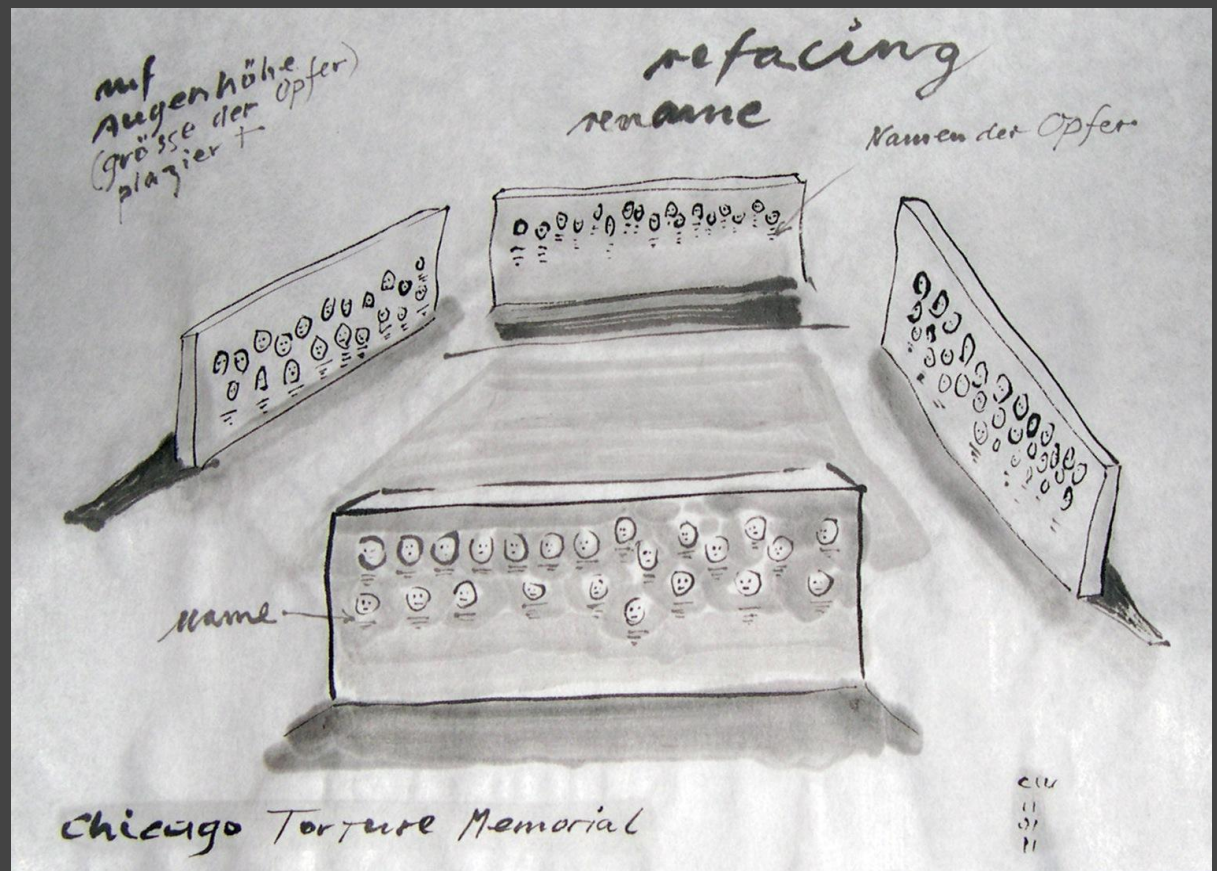 auf
Augenhöhe
(grösse der Opfer)
plaziert
refacing
rename
Namen der Opfer
Name
Chicago Torture Memorial